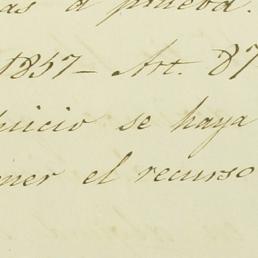 as a prueba.
1857 - Art. 87
juicio se haya
ner el recurso